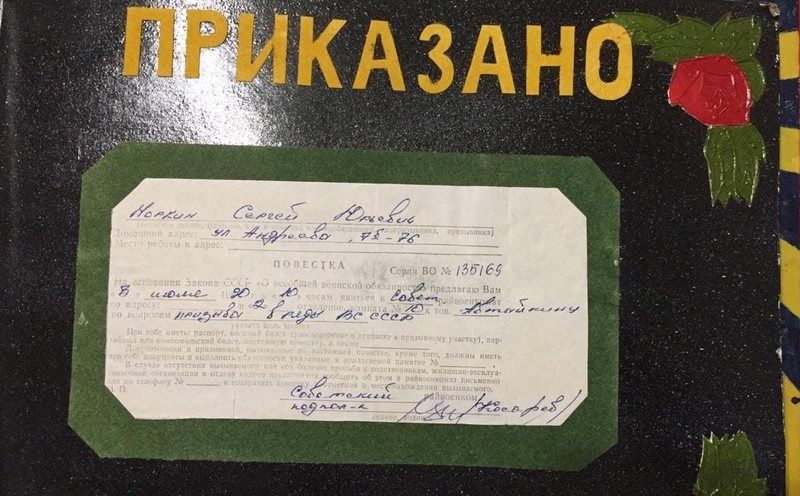 ПРИКАЗАНО
Норкин Сергей Юрьевич
призывника)
Домашний адрес: ул Андреева, 7б-76
Место работы и адрес:
ПОВЕСТКА Серия ВО № 135169
На основании Закона СССР «О всеобщей воинской обязанности» предлагаю Вам
В июле 19 90. 10 часам явиться в Совет. райвоенкомат
по адресу: 2 отделение, комната № 10 к тов.
по вопросам призыва в ряды ВС СССР
указать цель
При себе иметь: паспорт, военный билет (удостоверение о приписке к призывному участку), пар-
тийный или комсомольский билет, настоящую повестку, а также
Допризывники и призывники, вызываемые по настоящей повестке, кроме того, должны иметь
при себе документы и выполнить обязанности, указанные в прилагаемой памятке №
В случае отсутствия вызываемого или его болезни просьба к родственникам, жилищно-эксплуа-
тационной организации и отделу кадров предприятия сообщить об этом в райвоенкомат письменно
или по телефону № и возвратить повестку с отметкой о местонахождении вызываемого.
М. П. Советский райвоенком
подпол-к (Косарев)